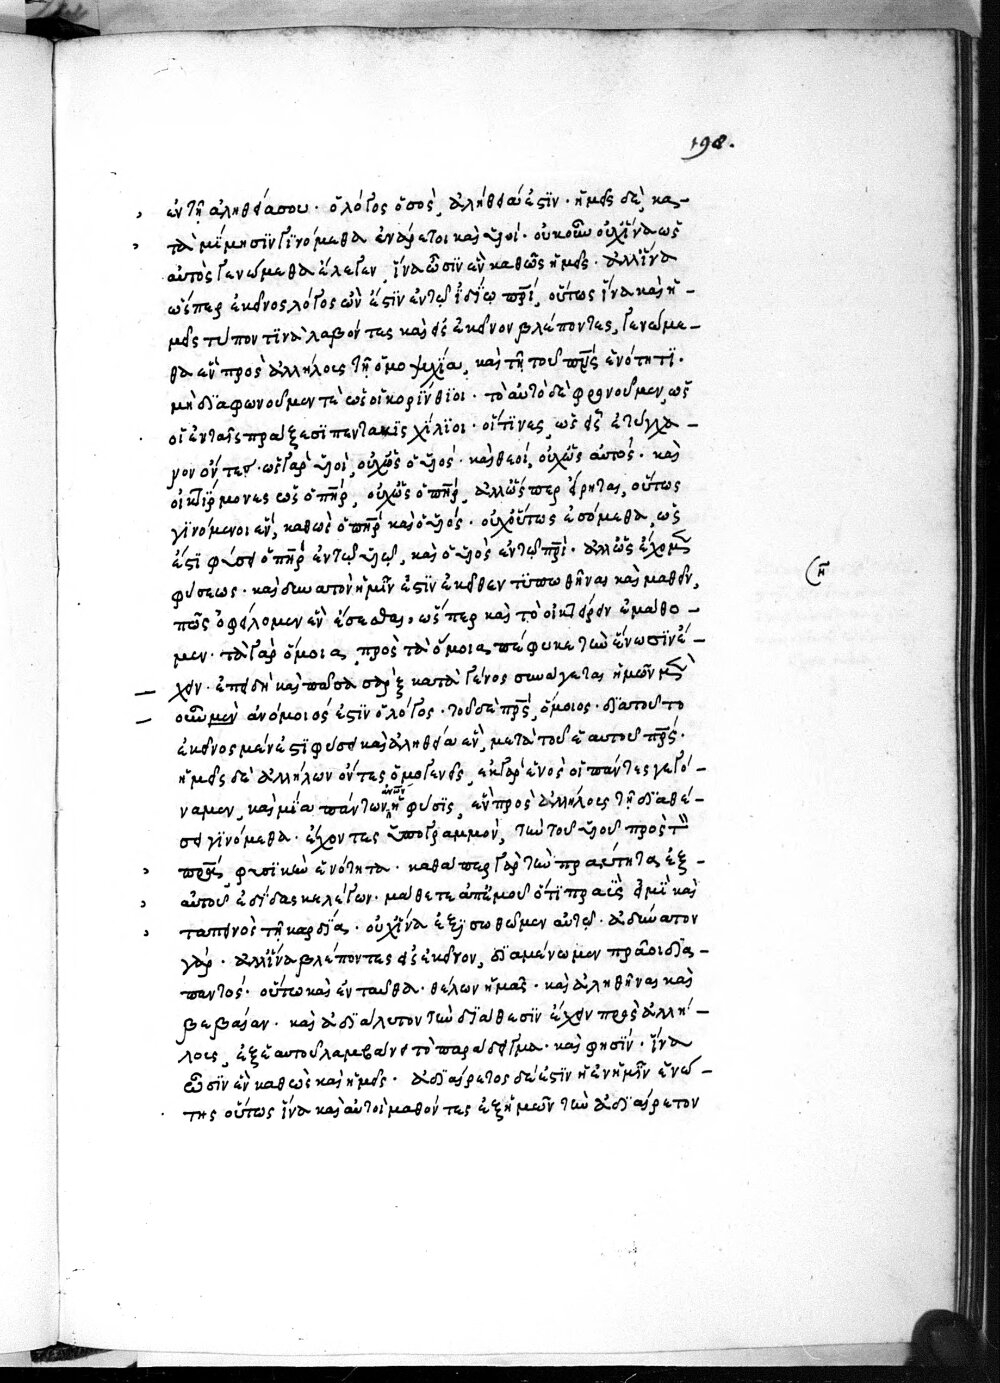 198.
ἐν τῇ ἀληθείᾳ σου· ὁ λόγος ὁ σὸς, ἀλήθειά ἐστιν· ἡμεῖς δὲ, κα-
τὰ μίμησιν γινόμεθα ἐνάρετοι καὶ υἱοί· οὐκοῦν οὐχ ἵνα ὡς
αὐτὸς γενώμεθα ἔλεγεν, ἵνα ὦσιν ἓν καθὼς ἡμεῖς· ἀλλ' ἵνα
ὥσπερ ἐκεῖνος λόγος ὢν ἐστὶν ἐν τῷ ἰδίῳ πρι, οὕτως ἵνα καὶ ἡ-
μεῖς τύπον τινὰ λαβόντες καὶ εἰς ἐκεῖνον βλέποντες, γενώμε-
θα ἓν πρὸς ἀλλήλους τῇ ὁμοψυχίᾳ, καὶ τῇ τοῦ πνς ἑνότητι·
μὴ διαφωνοῦμεν τε ὡς οἱ κορίνθιοι· τὸ αὐτὸ δὲ φρονοῦμεν, ὡς
οἱ ἐν ταῖς πράξεσι πεντακισχίλιοι· οἵτινες, ὡς εἷς ἐτύγχα-
νον ὄντες· ὡς γὰρ υἱοὶ, οὐχ ὡς ὁ υἱός· καὶ θεοὶ, οὐχ ὡς αὐτός· καὶ
οἰκτίρμονες ὡς ὁ πηρ, οὐχ ὡς ὁ πηρ, ἀλλ' ὥσπερ εἴρηται, οὕτως
γινόμενοι ἓν, καθὼς ὁ πηρ καὶ ὁ υἱός· οὐχ οὕτως ἐσόμεθα, ὡς
ἐστὶ φύσει ὁ πηρ ἐν τῷ υἱῷ, καὶ ὁ υἱὸς ἐν τῷ πρι· ἀλλ' ὡς ἔχομεν
φύσεως· καὶ δυνατὸν ἡμῖν ἐστὶν ἐκεῖθεν τυπωθῆναι καὶ μαθεῖν,
πῶς ὀφείλομεν ἓν ἔσεσθαι, ὥσπερ καὶ τὸ οἰκτείρειν ἐμάθο-
μεν· τὰ γὰρ ὅμοια, πρὸς τὰ ὅμοια πέφυκε τὴν ἕνωσιν ἔ-
χειν· ἐπειδὴ καὶ πᾶσα σὰρξ κατὰ γένος συνάγεται ἡμῶν μὲν
οὖν μὲν ἀνόμοιος ἐστὶν ὁ λόγος· τοῦ δὲ πρς, ὅμοιος· διὰ τοῦτο
ἐκεῖνος μὲν ἐστὶ φύσει καὶ ἀληθείᾳ ἓν, μετὰ τοῦ ἑαυτοῦ πρς·
ἡμεῖς δὲ ἀλλήλων ὄντες ὁμογενεῖς, ἐκ γὰρ ἑνὸς οἱ πάντες γεγό-
ναμεν, καὶ μία πάντων ανων ἡ φύσις, ἓν πρὸς ἀλλήλους τῇ διαθέ-
σει γινόμεθα· ἔχοντες ὑπογραμμὸν, τὴν τοῦ υἱοῦ πρὸς τὸν
πρα, φυσικὴν ἑνότητα· καθάπερ γὰρ τὴν πραότητα ἐξ-
αὐτοῦ ἐδίδασκε λέγων· μάθετε ἀπ' ἐμοῦ ὅτι πραΰς εἰμὶ καὶ
ταπεινὸς τῇ καρδίᾳ· οὐχ ἵνα ἐξισωθῶμεν αὐτῷ· ἀδύνατον
γάρ· ἀλλ' ἵνα βλέποντες εἰς ἐκεῖνον, διαμένωμεν πρᾶοι δια-
παντός· οὕτω καὶ ἐνταῦθα· θέλων ἡμᾶς· καὶ ἀληθῆναι καὶ
βεβαίαν· καὶ ἀδιάλυτον τὴν διάθεσιν ἔχειν πρὸς ἀλλή-
λους, ἐξ ἑαυτοῦ λαμβάνει τὸ παράδειγμα· καὶ φησίν· ἵνα
ὦσιν ἓν καθὼς καὶ ἡμεῖς· ἀδιαίρετος δέ ἐστιν ἡ ἐν ἡμῖν ἑνό-
της οὕτως ἵνα καὶ αὐτοὶ μαθόντες ἐξ ἡμῶν τὴν ἀδιαίρετον